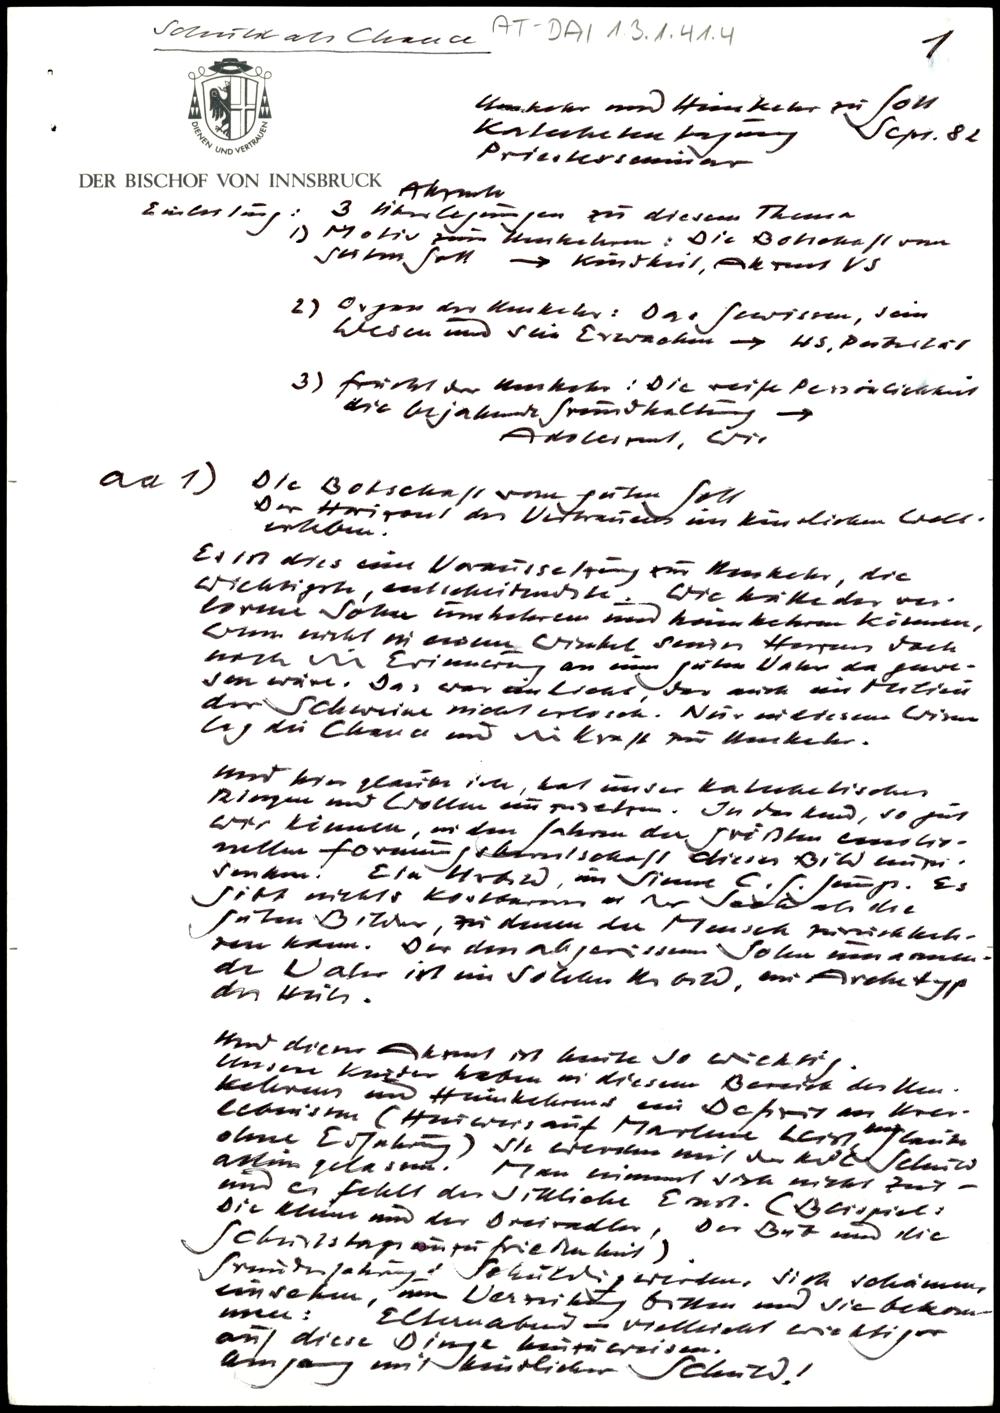 Schuld als Chance AT-DAI 1.3.1.41.4
1
DIENEN UND VERTRAUEN
DER BISCHOF VON INNSBRUCK
Umkehr und Heimkehr zu Gott
Katechetentagung Sept. 82
Priesterseminar
Akzente
Einleitung: 3 Überlegungen zu diesem Thema
1) Motiv zum Umkehren: Die Botschaft vom
guten Gott → Kindheit, Akzent VS
2) Organ der Umkehr: Das Gewissen, sein
Wesen und sein Erwachen → HS, Pubertät
3) Frucht der Umkehr: Die reife Persönlichkeit
die bejahende Grundhaltung →
Adoleszent, wir
ad 1) Die Botschaft vom guten Gott
Der Horizont des Vertrauens im kindlichen Welt-
erleben.
Es ist dies eine Voraussetzung zur Umkehr, die
wichtigste, entscheidendste. Wie hätte der ver-
lorene Sohn umkehren und heimkehren können,
wenn nicht in einem Winkel seines Herzens doch
noch die Erinnerung an einen guten Vater da gewe-
sen wäre. Das war ein Licht, das auch im Milieu
der Schweine nicht erlosch. Nur in diesem Wissen
lag die Chance und die Kraft zur Umkehr.
Und hier glaube ich, hat unser katechetisches
Ringen und Wollen einzusetzen. In das Kind, so gut
wir können, in den Jahren der größten emotio-
nellen Formungsbereitschaft dieses Bild einzu-
senken. Ein Urbild, im Sinne C. G. Jungs. Es
gibt nichts Kostbareres in der Seele als die
guten Bilder, zu denen der Mensch zurückkeh-
ren kann. Der den abgerissenen Sohn umarmen-
de Vater ist ein solches Urbild, ein Archetyp
des Heils.
Und dieser Akzent ist heute so wichtig.
Unsere Kinder haben in diesem Bereich des Um-
kehrens und Heimkehrens ein Defizit an Urer-
lebnissen (Hinweis auf Marlene Leist, Glaube
ohne Erfahrung) Sie werden mit der Schuld
allein gelassen. Man nimmt sich nicht Zeit –
und es fehlt der sittliche Ernst. (Beispiel:
Die Kleine und der Dreiradler, Der Bub und die
Schulstagsunzufriedenheit)
Grunderfahrung: Schuldig werden, sich schämen,
einsehen, um Verzeihung bitten und sie bekom-
men: Elternabend – vielleicht wichtiger
auf diese Dinge hinzuweisen.
Umgang mit kindlicher Schuld!